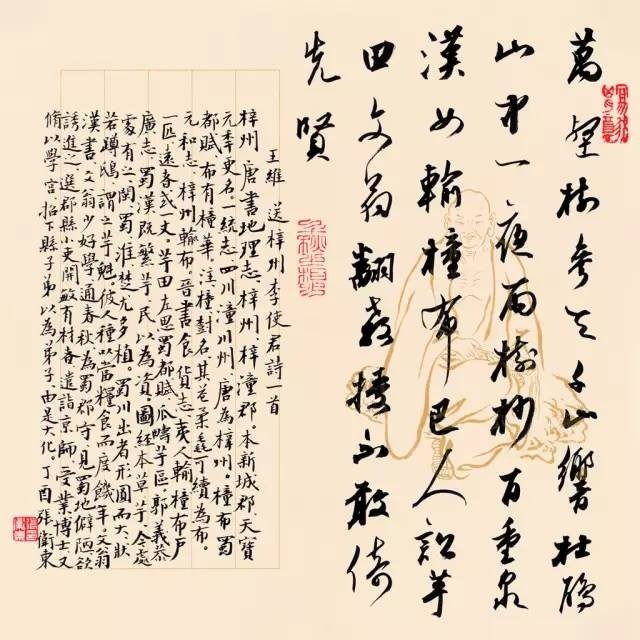 萬壑樹參天千山響杜鵑
山中一夜雨樹杪百重泉
漢女輸橦布巴人訟芋
田文翁翻教授不敢倚
先賢
王維 送梓州李使君詩一首
梓州唐書地理志、梓州梓潼郡。本新城郡、天寶
元季更名一統志四川潼川州、唐為梓州。橦布蜀
都賦、布有橦華。注橦樹名其花柔毳可績為布。
元和志、梓州輸布。晉書食貨志夷人輸橦布戶
一匹遠者或一丈。芋田左思蜀都賦瓜疇芋區郭義恭
廣志蜀漢既繁芋民以為資。圖經本草芋今處
處有之閩蜀淮楚尤多植。蜀川出者形圓而大、狀
若蹲鴟謂之芋魁彼人種以當糧食而度饑年。文翁
漢書文翁少好學通春秋為蜀郡守見蜀地僻陋欲
誘進之選郡縣小吏開敏有材者遣詣京師受業博士又
脩以學宮招下縣子弟以為弟子、由是大化。丁酉張衛東